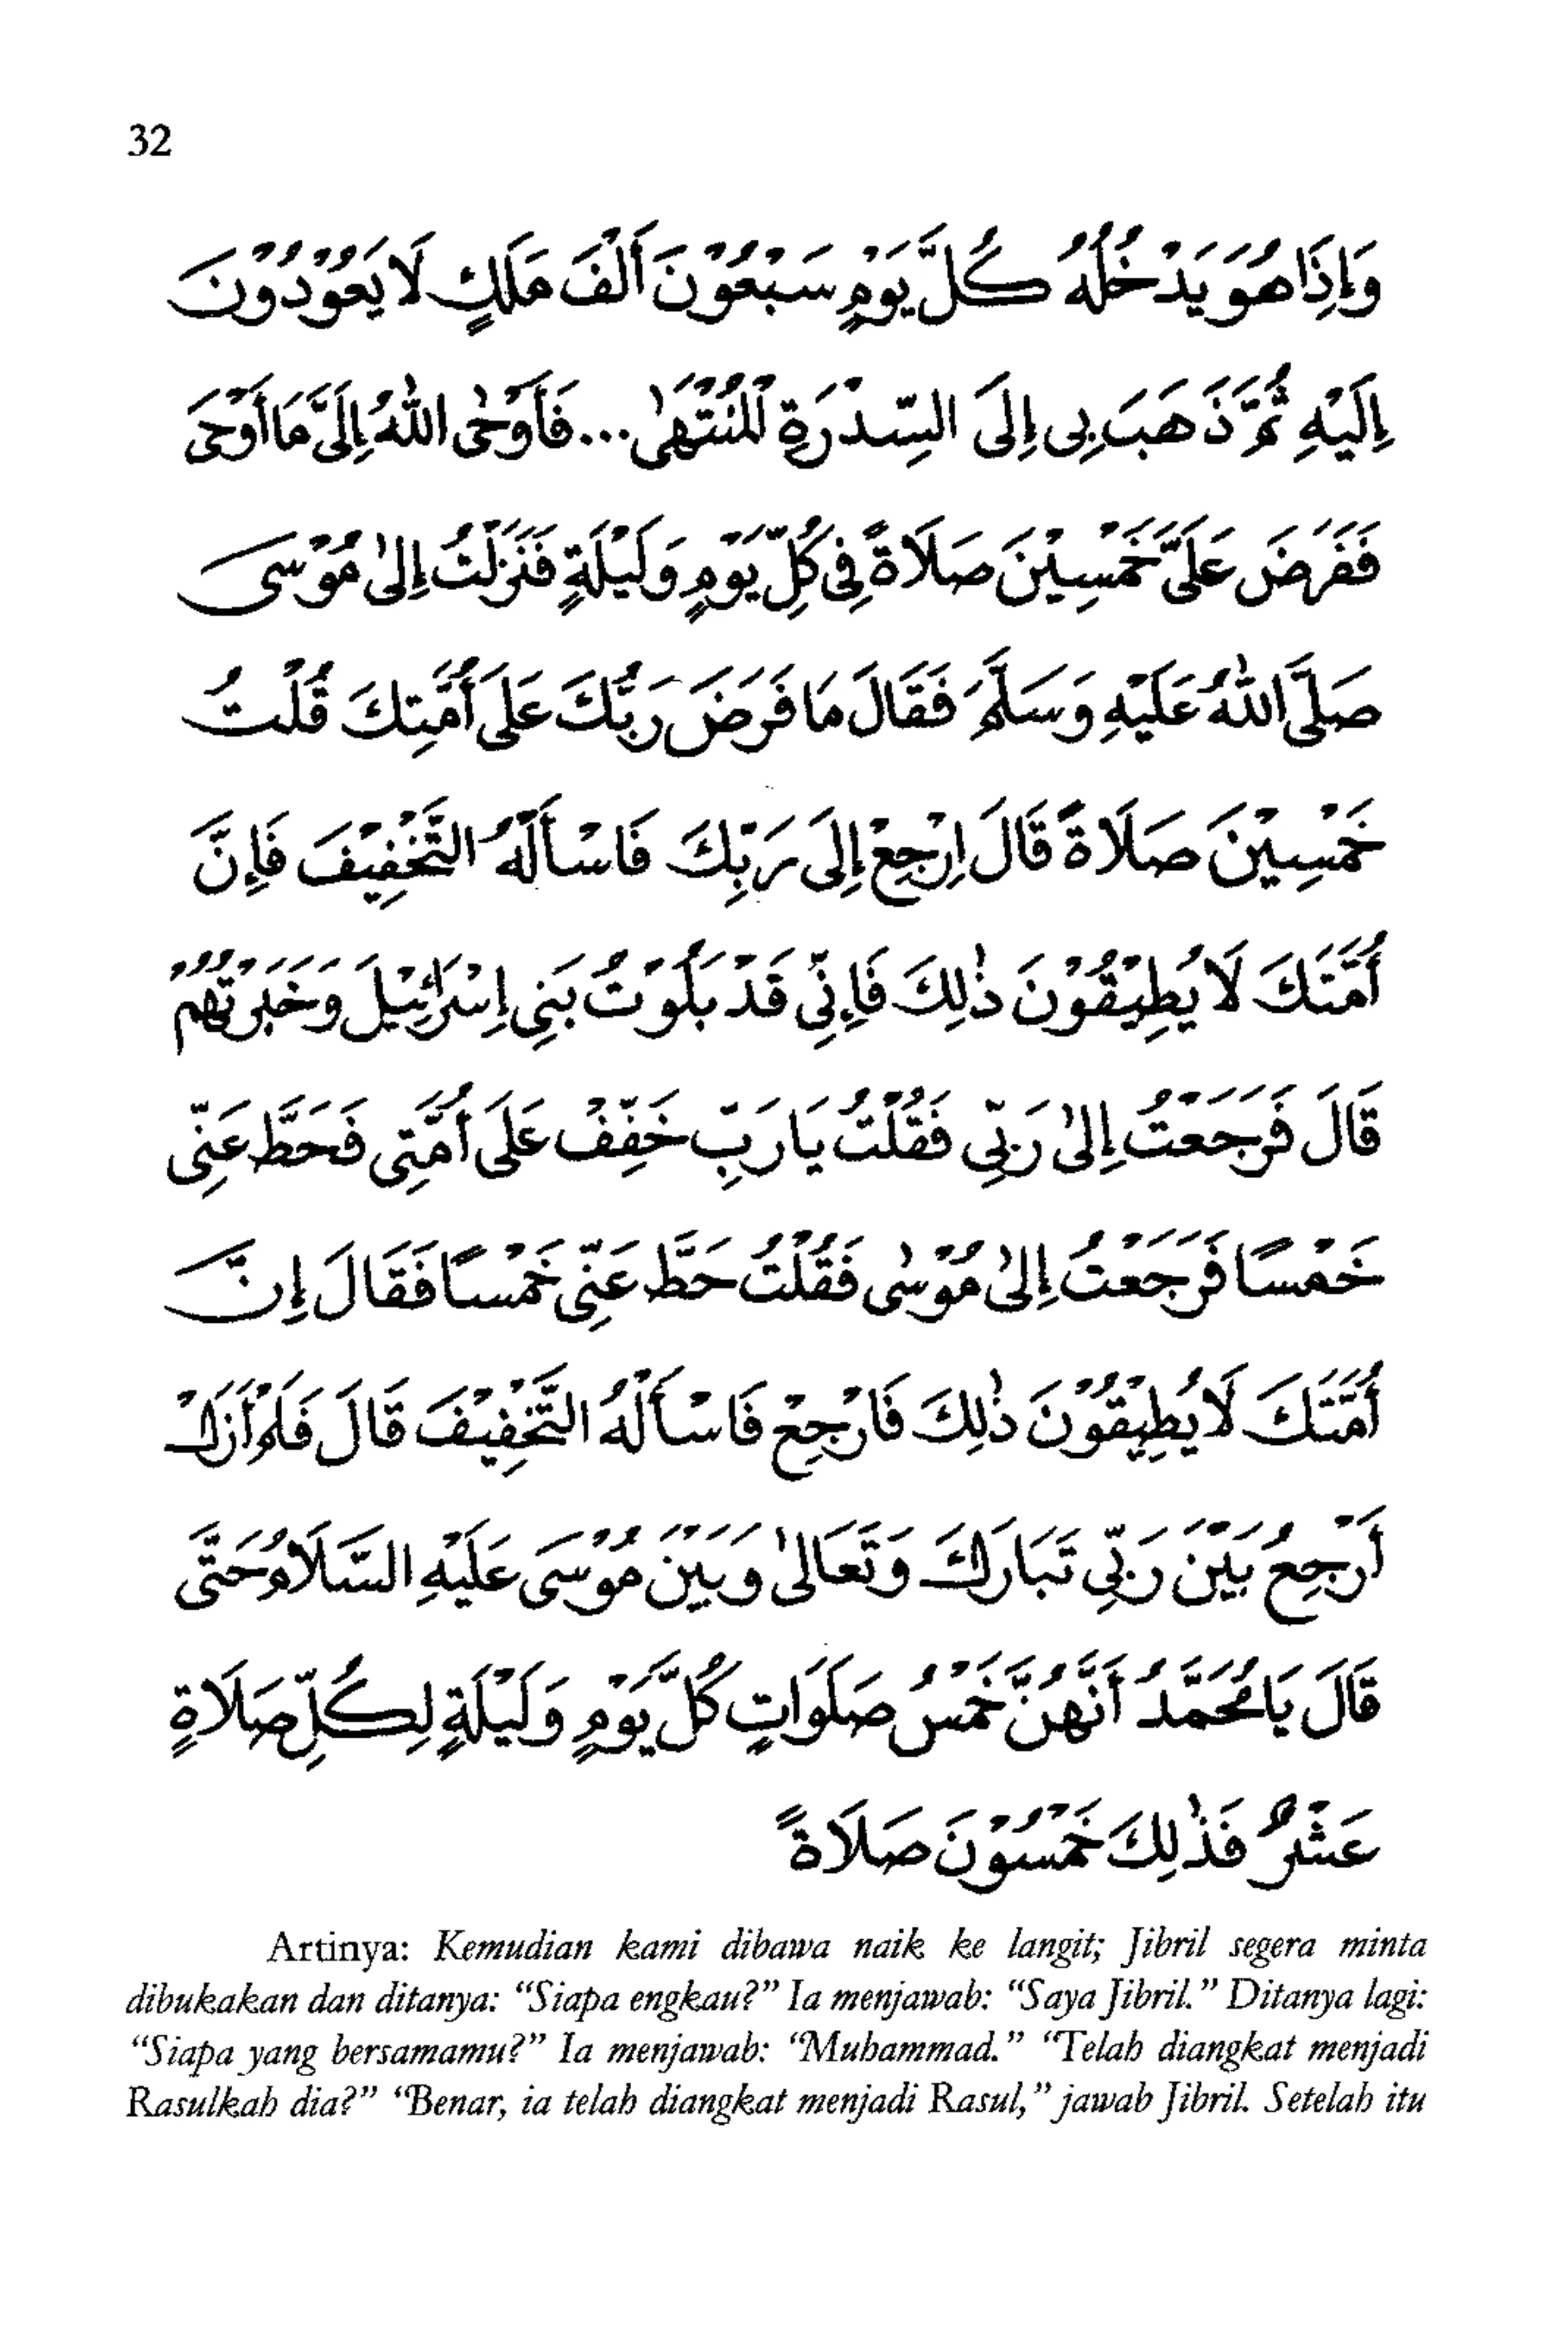 32
وَإِذَا هُوَ يَدْخُلُهُ كُلَّ يَوْمٍ سَبْعُوْنَ أَلْفَ مَلَكٍ لَا يَعُوْدُوْنَ
إِلَيْهِ ثُمَّ ذَهَبَ بِى إِلَى السِّدْرَةِ الْمُنْتَهٰى... فَأَوْحٰى اللّٰهُ إِلَيَّ مَا أَوْحَى
فَفَرَضَ عَلَيَّ خَمْسِيْنَ صَلَاةً فِى كُلِّ يَوْمٍ وَلَيْلَةٍ فَنَزَلْتُ إِلىٰ مُوْسَى
صَلَّى اللّٰهُ عَلَيْهِ وَسَلَّمَ فَقَالَ مَا فَرَضَ رَبُّكَ عَلَى أُمَّتِكَ قُلْتُ
خَمْسِيْنَ صَلَاةً قَالَ اِرْجِعْ إِلَى رَبِّكَ فَاسْأَلْهُ التَّخْفِيْفَ فَإِنَّ
أُمَّتَكَ لَا يُطِيْقُوْنَ ذٰلِكَ فَإِنِّي قَدْ بَلَوْتُ بَنِي إِسْرَائِيْلَ وَخَبَرْتُهُمْ
قَالَ فَرَجَعْتُ إِلىٰ رَبِّي فَقُلْتُ يَا رَبِّ خَفِّفْ عَلَى أُمَّتِى فَحَطَّ عَنِّى
خَمْسًا فَرَجَعْتُ إِلىٰ مُوْسٰى فَقُلْتُ حَطَّ عَنِّى خَمْسًا فَقَالَ إِنَّ
أُمَّتَكَ لَا يُطِيْقُوْنَ ذٰلِكَ فَارْجِعْ فَاسْأَلْهُ التَّخْفِيْفَ قَالَ فَلَمْ أَزَلْ
أَرْجِعُ بَيْنَ رَبِّي تَبَارَكَ وَتَعَالىٰ وَبَيْنَ مُوْسَى عَلَيْهِ السَّلَامُ حَتَّى
قَالَ يَا مُحَمَّدُ أَنَّهُنَّ خَمْسُ صَلَوَاتٍ كُلَّ يَوْمٍ وَلَيْلَةٍ لِكُلِّ صَلَاةٍ
عَشْرٌ فَذٰلِكَ خَمْسُوْنَ صَلَاةً
Artinya: Kemudian kami dibawa naik ke langit; Jibril segera minta
dibukakan dan ditanya: “Siapa engkau?” Ia menjawab: “Saya Jibril.” Ditanya lagi:
“Siapa yang bersamamu?” Ia menjawab: “Muhammad.” “Telah diangkat menjadi
Rasulkah dia?” “Benar, ia telah diangkat menjadi Rasul,” jawab Jibril. Setelah itu